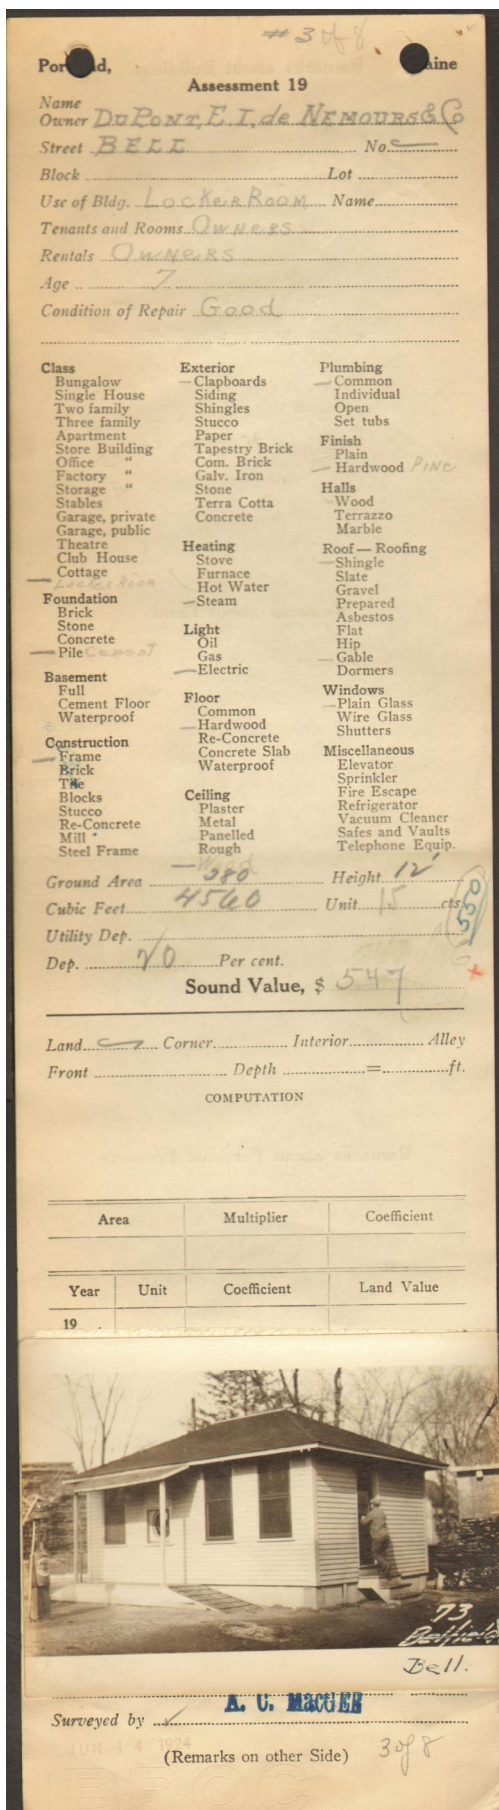 # 3 of 8
Portland, Maine
Assessment 19
Name
Owner DuPont, E. I. de Nemours & Co
Street BELL No.
Block Lot
Use of Bldg. Locker Room Name
Tenants and Rooms Owners
Rentals Owners
Age 7
Condition of Repair Good
Class
Bungalow
Single House
Two family
Three family
Apartment
Store Building
Office "
Factory "
Storage "
Stables
Garage, private
Garage, public
Theatre
Club House
Cottage
Locker Room
Foundation
Brick
Stone
Concrete
Pile Cement
Basement
Full
Cement Floor
Waterproof
Construction
Frame
Brick
Tile
Blocks
Stucco
Re-Concrete
Mill
Steel Frame
Exterior
Clapboards
Siding
Shingles
Stucco
Paper
Tapestry Brick
Com. Brick
Galv. Iron
Stone
Terra Cotta
Concrete
Heating
Stove
Furnace
Hot Water
Steam
Light
Oil
Gas
Electric
Floor
Common
Hardwood
Re-Concrete
Concrete Slab
Waterproof
Ceiling
Plaster
Metal
Panelled
Rough
Wood
Plumbing
Common
Individual
Open
Set tubs
Finish
Plain
Hardwood Pine
Halls
Wood
Terrazzo
Marble
Roof — Roofing
Shingle
Slate
Gravel
Prepared
Asbestos
Flat
Hip
Gable
Dormers
Windows
Plain Glass
Wire Glass
Shutters
Miscellaneous
Elevator
Sprinkler
Fire Escape
Refrigerator
Vacuum Cleaner
Safes and Vaults
Telephone Equip.
Ground Area 380 Height 12'
Cubic Feet 4560 Unit 15 cts.
550
Utility Dep.
Dep. 20 Per cent.
Sound Value, $ 547
Land Corner Interior Alley
Front Depth = ft.
COMPUTATION
Area Multiplier Coefficient
Year Unit Coefficient Land Value
19
73
Belfield
Bell.
A. C. MacGEE
Surveyed by
JUN 14 1924
(Remarks on other Side) 3 of 8